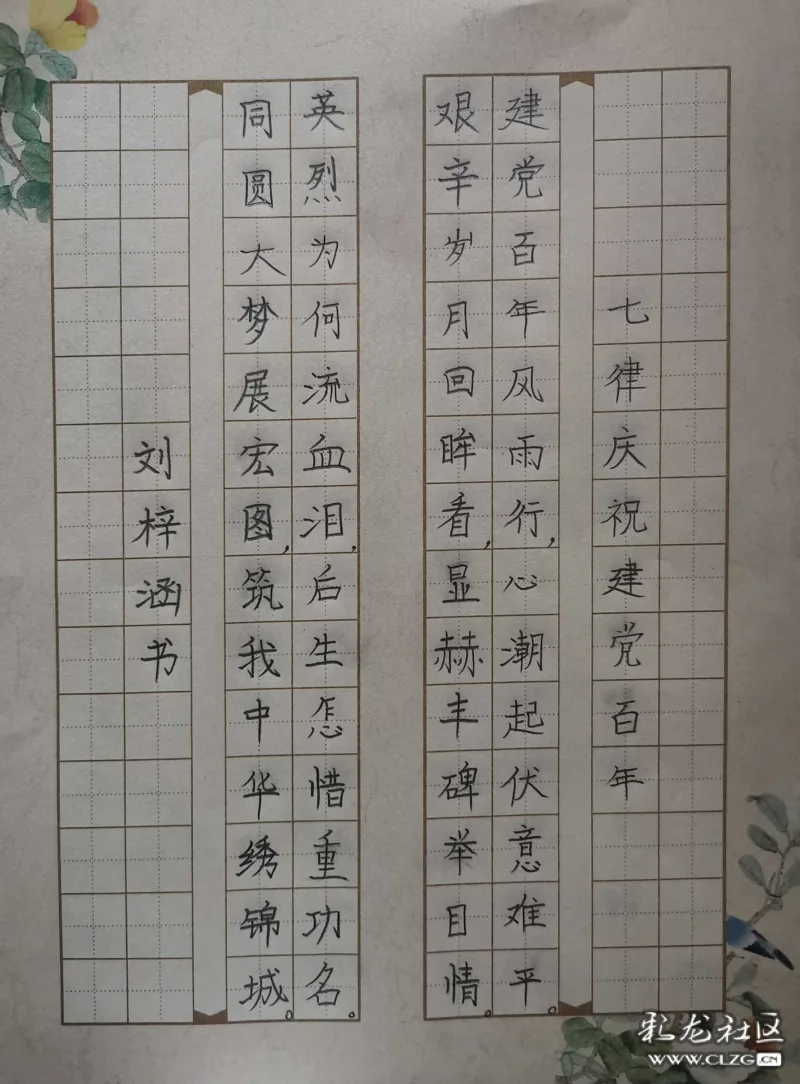 七律庆祝建党百年
建党百年风雨行,心潮起伏意难平。
艰辛岁月回眸看,显赫丰碑举目情。
英烈为何流血泪,后生怎惜重功名。
同圆大梦展宏图,筑我中华绣锦城。
刘梓涵书
彩龙社区
www.CLZG.CN